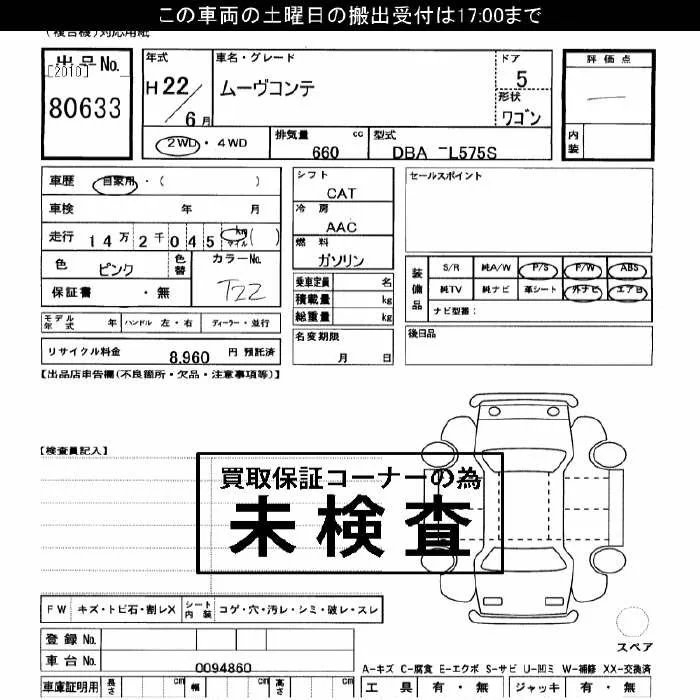 この車両の土曜日の搬出受付は17:00まで
(複合機)対応用紙
出品No.
[2010]
80633
年式
H22/6月
車名・グレード
ムーヴコンテ
ドア
5
形状
ワゴン
評価点
内装
2WD・4WD
排気量 cc
660
型式
DBA -L575S
車歴 自家用・( )
車検 年 月
走行 14万2千045 km マイル ( )
色 ピンク
色替
カラーNo.
T22
保証書 ・無
シフト
CAT
冷房
AAC
燃料
ガソリン
乗車定員 名
積載量 kg
総重量 kg
セールスポイント
装備品
S/R 純A/W P/S P/W ABS
純TV 純ナビ 革シート 外ナビ エアB
ナビ型番:
モデル年式 年 ハンドル 左・右 ディーラー・並行
名変期限
月 日
後日品
リサイクル料金 8,960 円 預託済
【出品店申告欄(不良箇所・欠品・注意事項等)】
【検査員記入】
買取保証コーナーの為
未検査
FW キズ・トビ石・割レX シート内装 コゲ・穴・汚レ・シミ・破レ・スレ
登録No.
車台No. 0094860
スペア
A-キズ C-腐食 E-エクボ S-サビ U-凹ミ W-補修 XX-交換済
車庫証明用 長さ cm 幅 cm 高さ cm
工具 有・無 ジャッキ 有・無